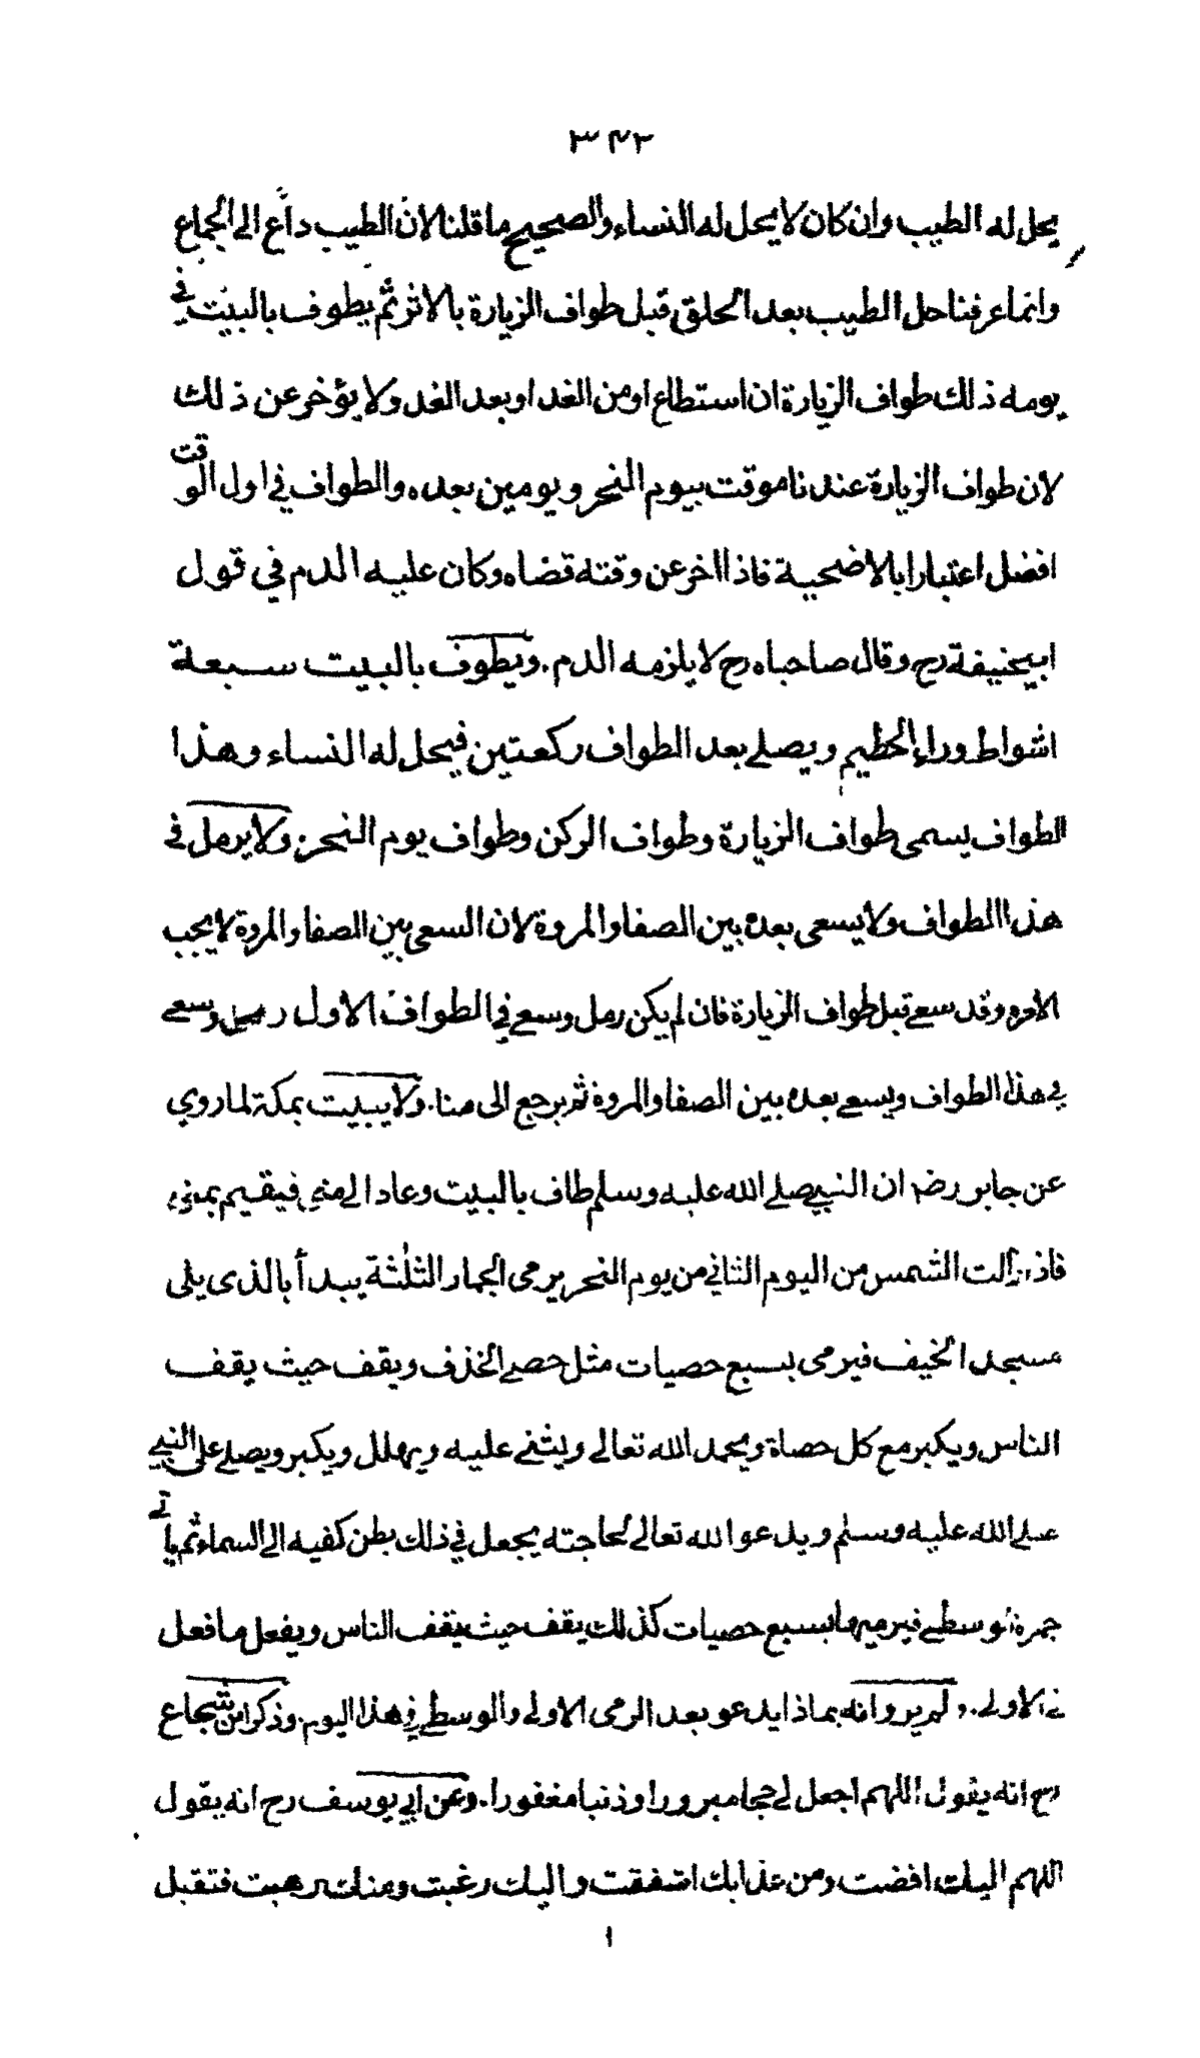 ٣٤٢
يحل له الطيب وان كان لا يحل له النساء والصحيح ما قلنا لان الطيب داع الى الجماع
وانما عرفنا حل الطيب بعد الحلق قبل طواف الزيارة بالاثر ثم يطوف بالبيت في
يومه ذلك طواف الزيارة ان استطاع او من الغد او بعد الغد ولا يؤخر عن ذلك
لان طواف الزيارة عندنا موقت بيوم النحر ويومين بعده والطواف في اول الوقت
افضل اعتبارا بالاضحية فاذا اخر عن وقته قضاه وكان عليه الدم في قول
ابيحنيفة رح وقال صاحباه رح لا يلزمه الدم. ويطوف بالبيت سبعة
اشواط وراء الحطيم ويصلے بعد الطواف ركعتين فيحل له النساء وهذا
الطواف يسمى طواف الزيارة وطواف الركن وطواف يوم النحر ولا يرمل في
هذا الطواف ولا يسعى بعده بين الصفا والمروة لان السعى بين الصفا والمروة لا يجب
الا مرة وقد سعے قبل طواف الزيارة فان لم يكن رمل وسعے في الطواف الاول رمل وسعے
في هذا الطواف ويسعے بعده بين الصفا والمروة ثم يرجع الى منا. ولا يبيت بمكة لما روي
عن جابر رضہ ان النبي صلے الله عليه وسلم طاف بالبيت وعاد الے منى فيقيم بمنى
فاذا زالت الشمس من اليوم الثاني من يوم النحر يرمى الجمار الثلثة يبدأ بالذى يلى
مسجد الخيف فيرمى بسبع حصيات مثل حصے الخذف ويقف حيث يقف
الناس ويكبر مع كل حصاة ويحمد الله تعالے ويثنے عليه ويهلل ويكبر ويصلے على النبي
صلے الله عليه وسلم ويدعو الله تعالے لحاجته يجعل في ذلك بطن كفيه الے السماء ثم ياتے
جمرة الوسطے فيرميها بسبع حصيات كذلك يقف حيث يقف الناس ويفعل ما فعل
في الاولے. ولم يروا انه بماذا يدعو بعد الرمى الاولے والوسطے في هذا اليوم. وذكر ابن شجاع
رح انه يقول اللهم اجعل لے حجا مبرورا وذنبا مغفورا. وعن ابي يوسف رح انه يقول
اللهم اليك افضت ومن عذابك اشفقت واليك رغبت ومنك رهبت فتقبل
١